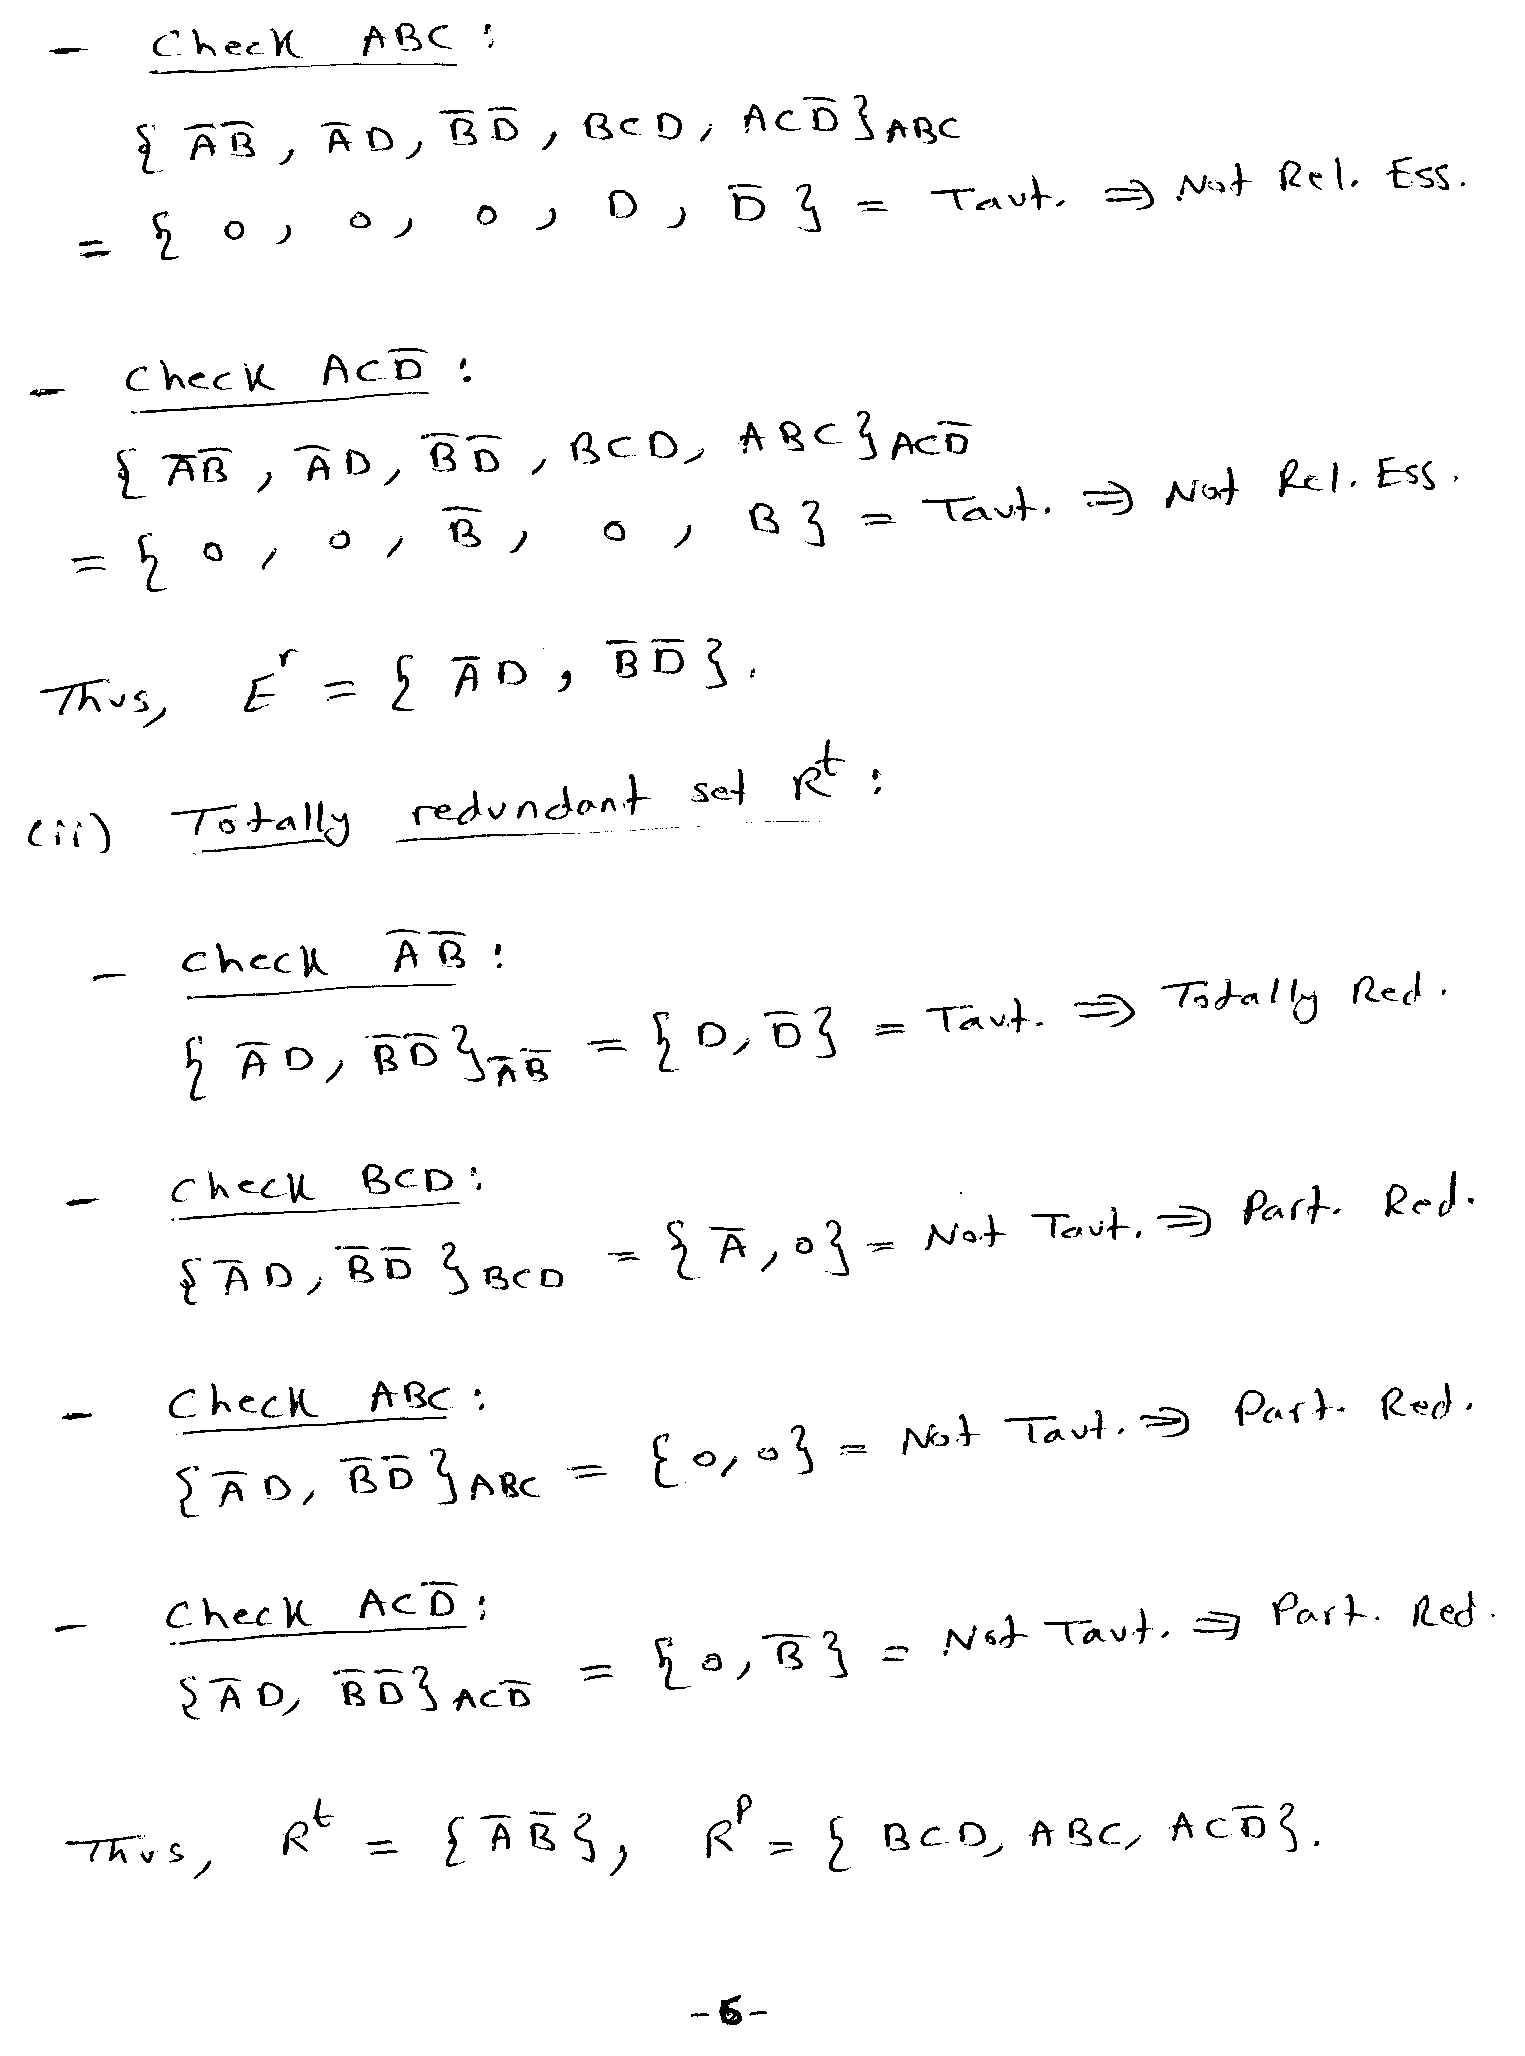 - Check ABC :
{ A̅B̅, A̅D, B̅D̅, BCD, ACD̅ }ABC
= { 0, 0, 0, D, D̅ } = Taut. ⇒ Not Rel. Ess.
- Check ACD̅ :
{ A̅B̅, A̅D, B̅D̅, BCD, ABC }ACD̅
= { 0, 0, B̅, 0, B } = Taut. ⇒ Not Rel. Ess.
Thus, Eʳ = { A̅D, B̅D̅ }.
(ii) Totally redundant set Rᵗ :
- check A̅B̅ :
{ A̅D, B̅D̅ }A̅B̅ = { D, D̅ } = Taut. ⇒ Totally Red.
- check BCD :
{ A̅D, B̅D̅ }BCD = { A̅, 0 } = Not Taut. ⇒ Part. Red.
- Check ABC :
{ A̅D, B̅D̅ }ABC = { 0, 0 } = Not Taut. ⇒ Part. Red.
- Check ACD̅ :
{ A̅D, B̅D̅ }ACD̅ = { 0, B̅ } = Not Taut. ⇒ Part. Red.
Thus, Rᵗ = { A̅B̅ }, Rᵖ = { BCD, ABC, ACD̅ }.
-6-